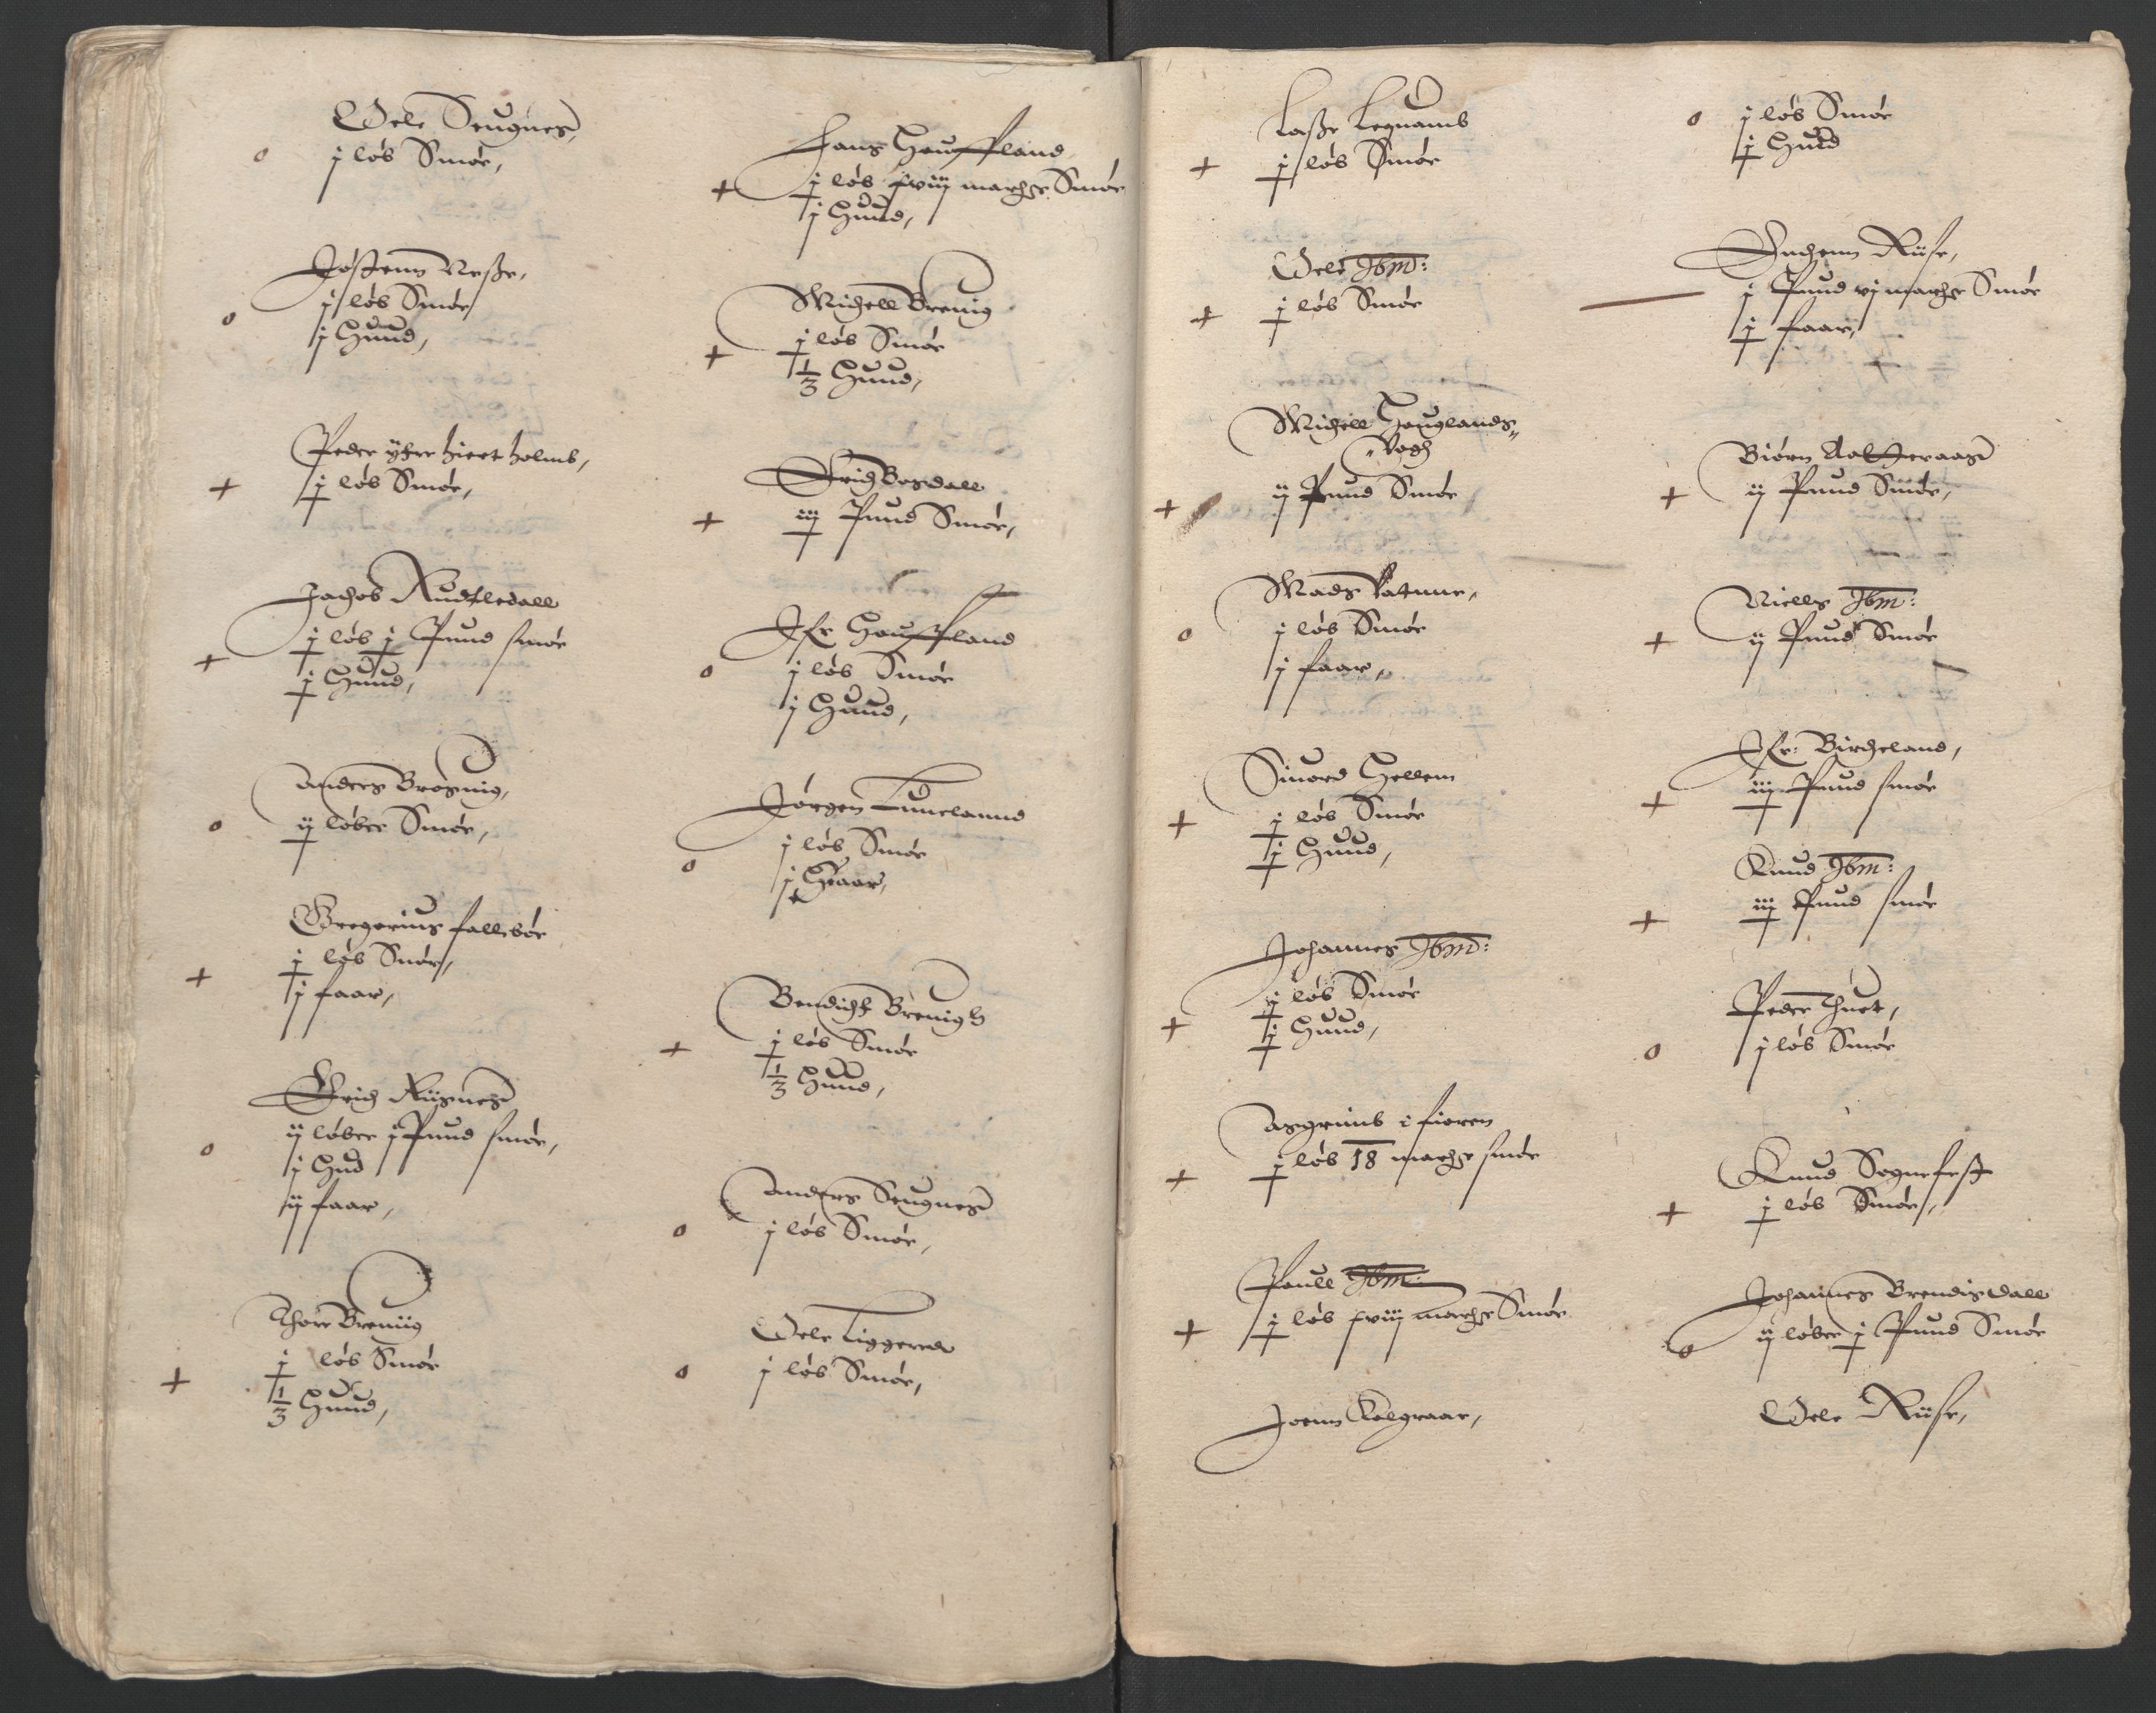 Oele Seugnes,
o j løb Smør,
Jostenn Nesse,
o j løb Smør
j Huud,
Peder yttre hiertholmb,
+ j løb Smør,
Jachob Rudsledall
+ j løb j Pund smør
j Huud,
Anders Brosuig,
o ij løber Smør,
Gregorius fallebør
+ j løb Smør,
j faar,
Erich Riisnes
o ij løber j Pund smør,
j Hud
ij faar,
Thore Breuiig
+ j løb Smør
1/3 Huud,
Hans Haufland
+ j løb xviij marcher Smør
j Huud,
Michell Breuig
+ j løb Smør
1/3 Huud,
Erich Bogdall
+ iij Pund Smør,
Ifr Haufland
o j løb Smør
j Huud,
Jørgen Tuneland
o j løb Smør
j faar,
Bendicht Breuigh
+ j løb Smør
1/3 Huud,
Anders Seugnes
o j løb Smør,
Oele Liggered
o j løb Smør,
Lasse Leguamb
+ j løb Smør
Oele Ibm:
+ j løb Smør
Michell Houglands
Vogh
+ ij Pund Smør
Mads Vatnne,
o j løb Smør
j faar,
Siuord Hellem
+ j løb Smør
j Huud,
Johannes Ibm:
+ j løb Smør
j Huud,
Asgrimb i fioren
+ j løb 18 marcher smør
Pouell Ibm:
+ j løb xviij marcher Smør
Joenn Kolgraar,
o j løb Smør
j Hud
Inchenn Riise,
j Pund vj marcher Smør
j faar,
Biørn Aolseraas
+ ij Pund Smør,
Niells Ibm:
+ ij Pund Smør
Ifr: Bircheland,
+ iij Pund smør
Knud Ibm:
+ iij Pund smør
Peder Huet,
o j løb Smør
Knud Sognefest
+ j løb Smør,
Johannes Brendisdall
o ij løber j Pund Smør
Oele Riise,